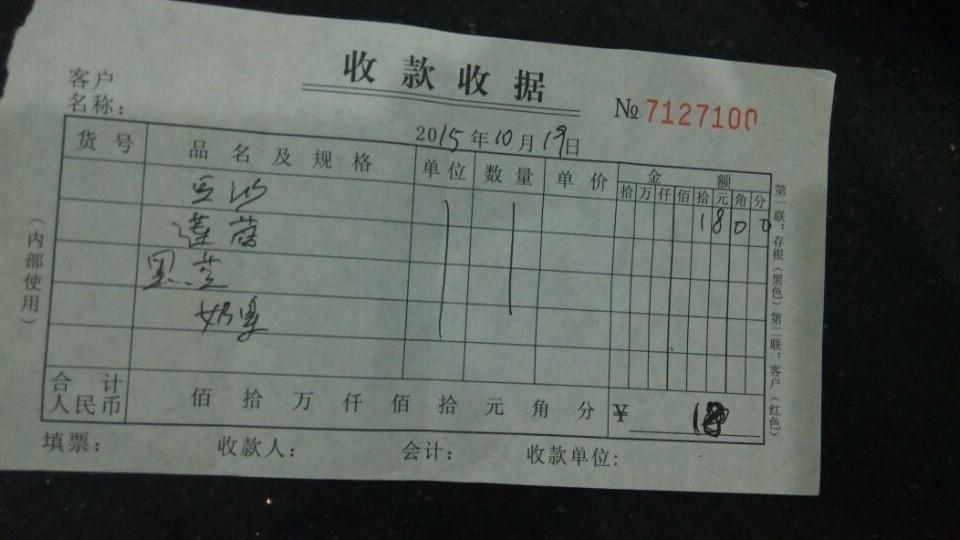 收款收据
客户
名称：
№ 7127100
2015年10月19日
货号 品名及规格 单位 数量 单价 金额
拾 万 仟 佰 拾 元 角 分
豆沙 1 8 0 0
莲蓉
黑芝
奶黄
合计
人民币 佰 拾 万 仟 佰 拾 元 角 分 ¥ 18
填票： 收款人： 会计： 收款单位：
（内部使用）
第一联：存根（黑色）第二联：客户（红色）